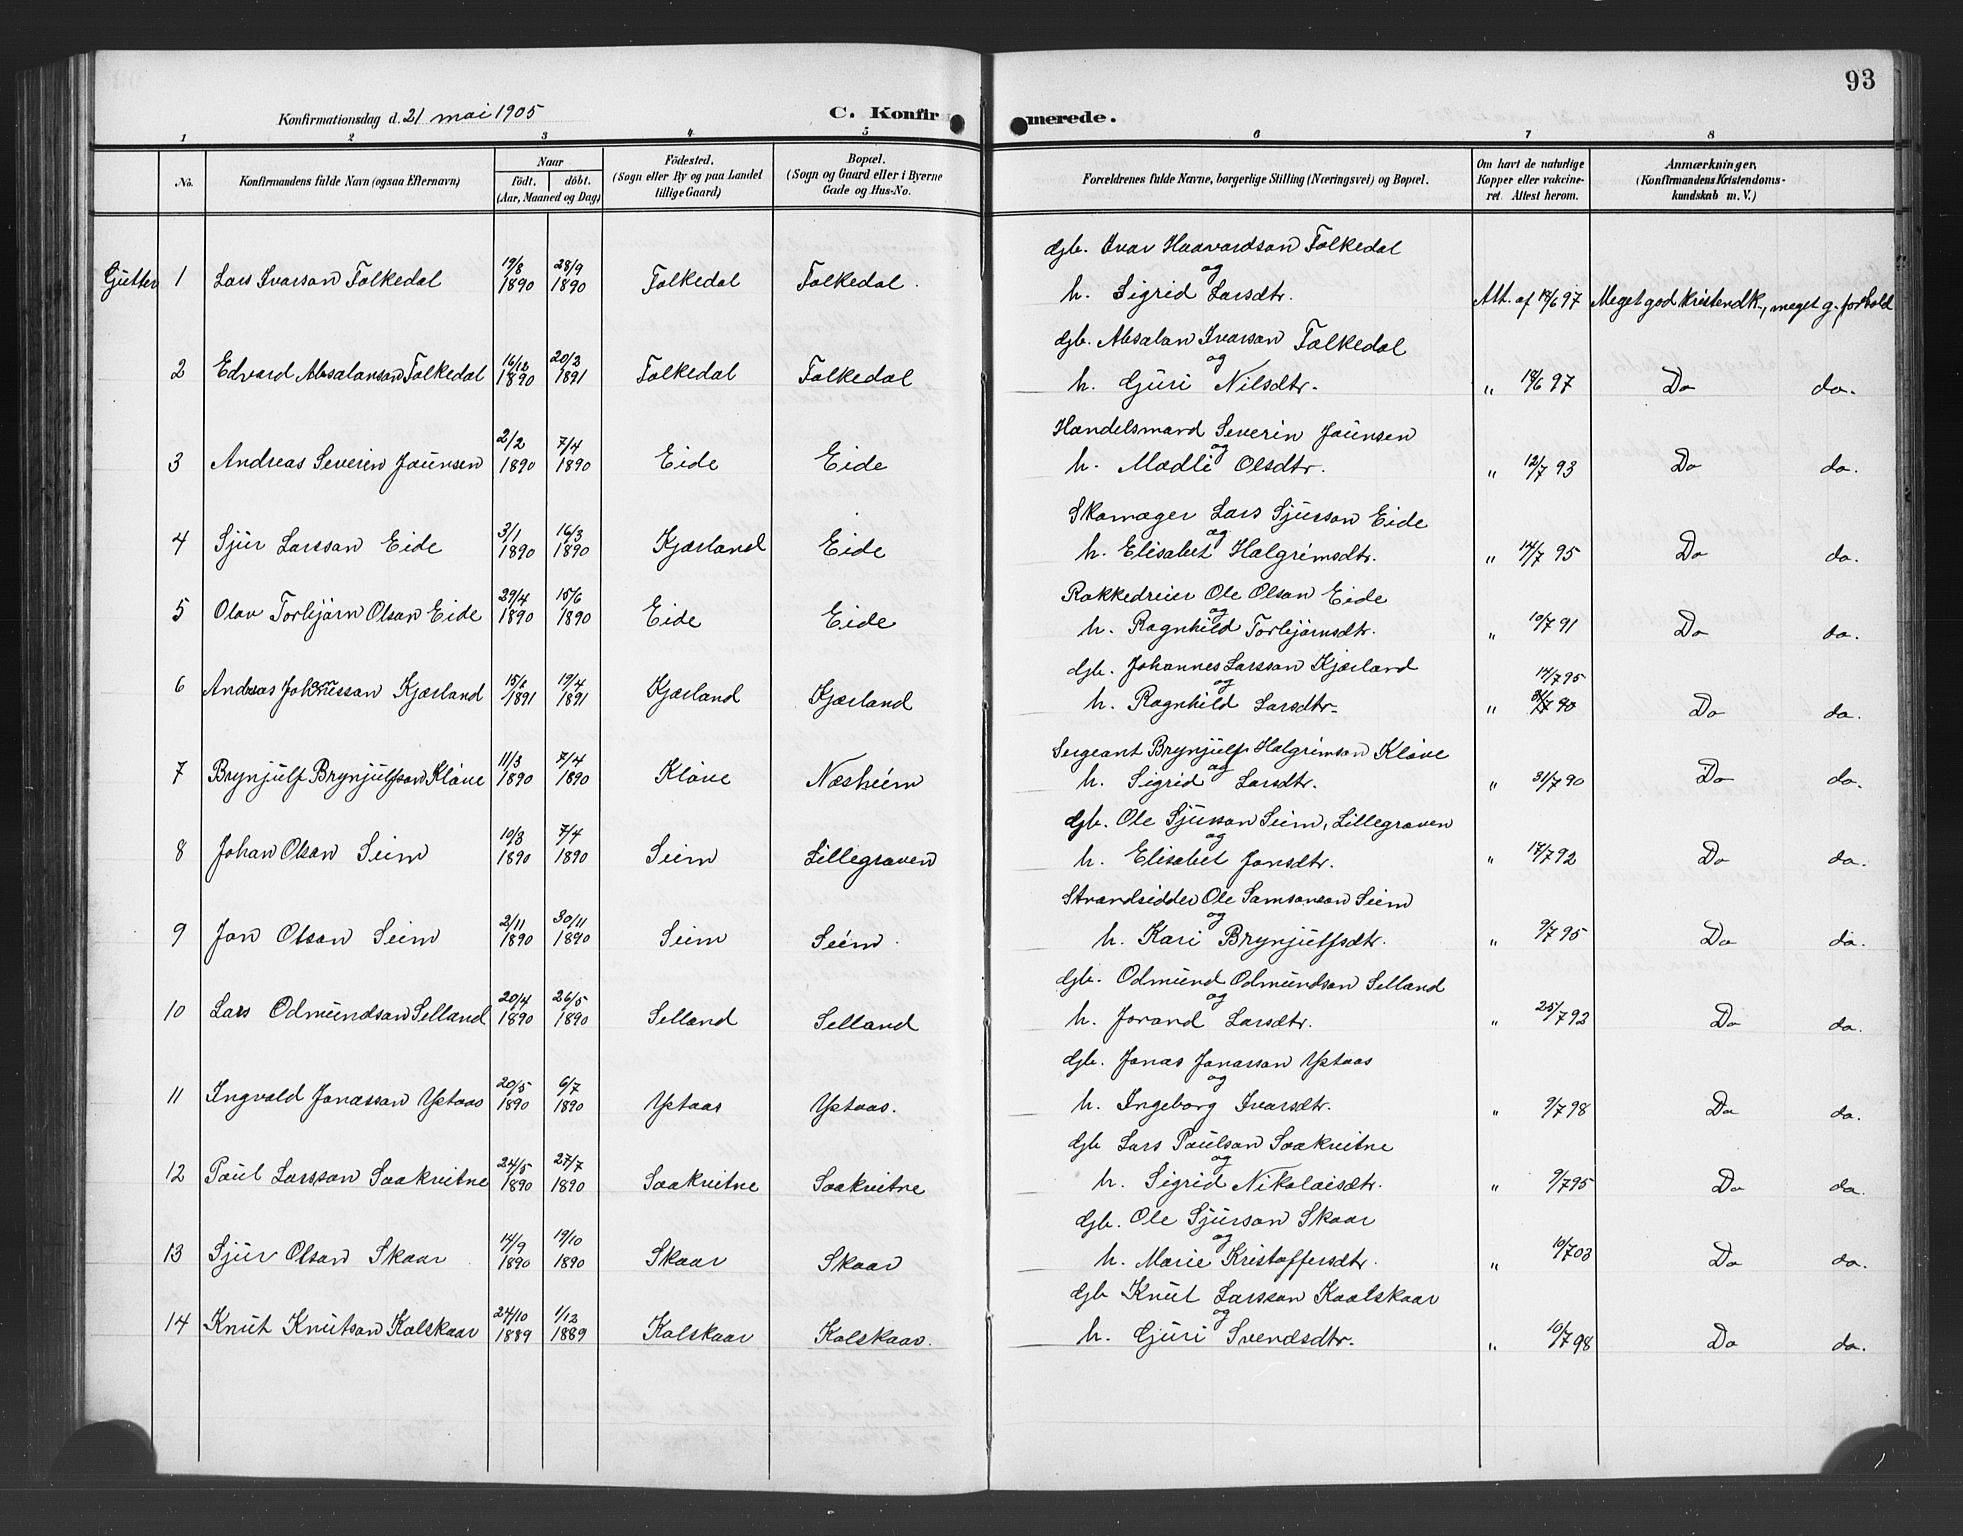 93
Konfirmationsdag d. 21 mai 1905 C. Konfirmerede.
1 2 3 4 5 6 7 8
No. Konfirmandens fulde Navn (ogsaa Efternavn) Naar födt. döbt. (Aar, Maaned og Dag) Födested. (Sogn eller By og paa Landet tillige Gaard) Bopæl. (Sogn og Gaard eller i Byerne Gade og Hus-No. Forældrenes fulde Navne, borgerlige Stilling (Næringsvei) og Bopæl. Om havt de naturlige Kopper eller vakcineret. Attest herom. Anmærkninger, (Konfirmandens Kristendomskundskab m. V.)
Gutter 1 Lars Ivarson Folkedal 19/8 1890 28/9 1890 Folkedal Folkedal. Gb. Ivar Haavardson Folkedal og h. Sigrid Larsdtr. Att. af 18/6 97 Meget god kristendk., meget g. forhold
2 Edvard Absalonson Folkedal 16/12 1890 20/2 1891 Folkedal Folkedal Gb. Absalon Ivarson Folkedal og h. Guri Nilsdtr. " 18/6 97 Do do.
3 Andreas Severin Jaunsen 2/2 1890 7/4 1890 Eide Eide Handelsmand Severin Jaunsen og h. Madli Olsdtr. " 12/7 93 Do do.
4 Sjur Larsson Eide 3/1 1890 16/3 1890 Kjærland Eide Skomager Lars Sjurson Eide og h. Elisabet Halgrimsdtr. " 14/7 95 Do do.
5 Olav Torbjørn Olson Eide 29/4 1890 15/6 1890 Eide Eide Rokkedreier Ole Olson Eide og h. Ragnhild Torbjørnsdtr. " 10/7 91 Do do.
6 Andreas Johannesson Kjærland 15/2 1891 19/4 1891 Kjærland Kjærland Gb. Johannes Larsson Kjærland og h. Ragnhild Larsdtr. " 14/7 95 31/7 90 Do do.
7 Brynjulf Brynjulfson Kløve 11/3 1890 7/4 1890 Kløve Næsheim Sergeant Brynjulf Halgrimson Kløve og h. Sigrid Larsdtr. " 31/7 90 Do do.
8 Johan Olson Seim 10/3 1890 7/4 1890 Seim Lillegraven Gb. Ole Sjurson Seim, Lillegraven og h. Elisabet Jonsdtr. " 17/7 92 Do do.
9 Jon Olson Seim 2/11 1890 30/11 1890 Seim Seim. Strandsidder Ole Samsonson Seim og h. Kari Brynjulfsdtr. " 9/7 95 Do do.
10 Lars Odmundson Selland 20/4 1890 26/5 1890 Selland Selland Gb. Odmund Odmundson Selland og h. Jorand Larsdtr. " 25/7 92 Do do.
11 Ingvald Jonasson Ystaas 20/5 1890 6/7 1890 Ystaas Ystaas. Gb. Jonas Jonasson Ystaas og h. Ingeborg Ivarsdtr. " 9/7 98 Do do.
12 Paul Larsson Saakvitne 24/5 1890 27/7 1890 Saakvitne Saakvitne Gb Lars Paulson Saakvitne og h. Sigrid Nikolaisdtr. " 9/7 95 Do do.
13 Sjur Olson Skaar 14/9 1890 19/10 1890 Skaar Skaar Gb. Ole Sjurson Skaar og h. Marie Kristoffersdtr. " 10/7 03 Do do.
14 Knut Knutson Kolskaar 24/10 1889 1/12 1889 Kolskaar Kolskaar. Gb Knut Larsson Kaalskaar og h. Guri Svendsdtr. " 10/7 98 Do do.